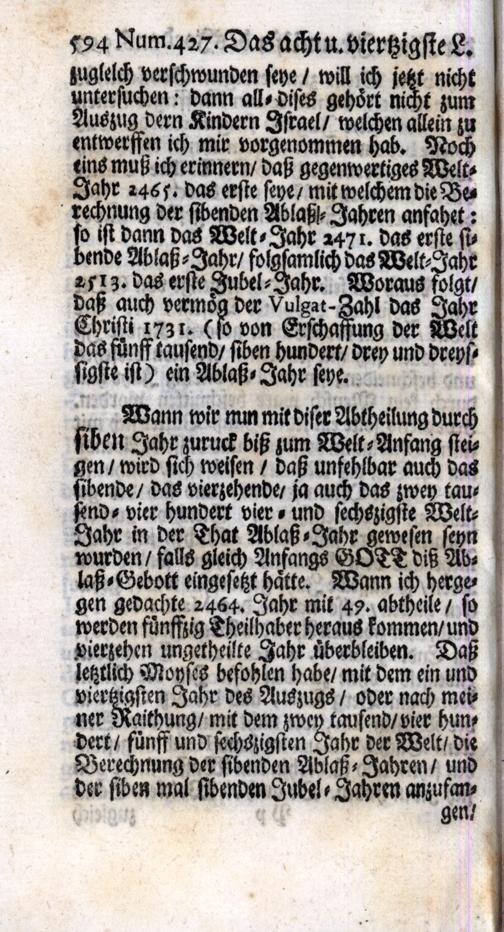 594 Num. 427. Das acht u. viertzigste L.
zugleich verschwunden seye / will ich jetzt nicht
untersuchen: dann all⸗dises gehört nicht zum
Auszug dern Kindern Israel / welchen allein zu
entwerffen ich mir vorgenommen hab. Noch
eins muß ich erinnern / daß gegenwertiges Welt⸗
Jahr 2465. das erste seye / mit welchem die Be⸗
rechnung der sibenden Ablaß⸗Jahren anfahet:
so ist dann das Welt⸗Jahr 2471. das erste si⸗
bende Ablaß⸗Jahr / folgsamlich das Welt⸗Jahr
2513. das erste Jubel⸗Jahr. Woraus folgt /
daß auch vermög der Vulgat⸗Zahl das Jahr
Christi 1731. (so von Erschaffung der Welt
das fünff tausend / siben hundert / drey und dreys⸗
sigste ist) ein Ablaß⸗Jahr seye.
Wann wir nun mit diser Abtheilung durch
siben Jahr zuruck biß zum Welt⸗Anfang stei⸗
gen / wird sich weisen / daß unfehlbar auch das
sibende / das vierzehende / ja auch das zwey tau⸗
send⸗ vier hundert vier⸗ und sechszigste Welt⸗
Jahr in der That Ablaß⸗Jahr gewesen seyn
wurden / falls gleich Anfangs GOTT diß Ab⸗
laß⸗Gebott eingesetzt hätte. Wann ich herge⸗
gen gedachte 2464. Jahr mit 49. abtheile / so
werden fünffzig Theilhaber heraus kommen / und
vierzehen ungetheilte Jahr überbleiben. Daß
letztlich Moyses befohlen habe / mit dem ein und
viertzigsten Jahr des Auszugs / oder nach mei⸗
ner Raithung / mit dem zwey tausend / vier hun⸗
dert / fünff und sechszigsten Jahr der Welt / die
Berechnung der sibenden Ablaß⸗Jahren / und
der siben mal sibenden Jubel⸗Jahren anzufan⸗
gen /